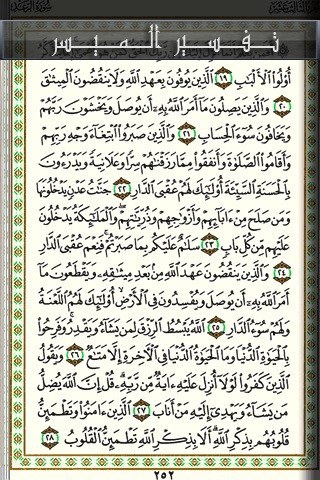 سُورَةُ الرَّعْدِ
تفسير الميسر
أُوْلُواْ ٱلۡأَلۡبَٰبِ ١٩ ٱلَّذِينَ يُوفُونَ بِعَهۡدِ ٱللَّهِ وَلَا يَنقُضُونَ ٱلۡمِيثَٰقَ
٢٠ وَٱلَّذِينَ يَصِلُونَ مَآ أَمَرَ ٱللَّهُ بِهِۦٓ أَن يُوصَلَ وَيَخۡشَوۡنَ رَبَّهُمۡ
وَيَخَافُونَ سُوٓءَ ٱلۡحِسَابِ ٢١ وَٱلَّذِينَ صَبَرُواْ ٱبۡتِغَآءَ وَجۡهِ رَبِّهِمۡ
وَأَقَامُواْ ٱلصَّلَوٰةَ وَأَنفَقُواْ مِمَّا رَزَقۡنَٰهُمۡ سِرّٗا وَعَلَانِيَةٗ وَيَدۡرَءُونَ
بِٱلۡحَسَنَةِ ٱلسَّيِّئَةَ أُوْلَٰٓئِكَ لَهُمۡ عُقۡبَى ٱلدَّارِ ٢٢ جَنَّٰتُ عَدۡنٖ يَدۡخُلُونَهَا
وَمَن صَلَحَ مِنۡ ءَابَآئِهِمۡ وَأَزۡوَٰجِهِمۡ وَذُرِّيَّٰتِهِمۡۖ وَٱلۡمَلَٰٓئِكَةُ يَدۡخُلُونَ
عَلَيۡهِم مِّن كُلِّ بَابٖ ٢٣ سَلَٰمٌ عَلَيۡكُم بِمَا صَبَرۡتُمۡۚ فَنِعۡمَ عُقۡبَى ٱلدَّارِ
٢٤ وَٱلَّذِينَ يَنقُضُونَ عَهۡدَ ٱللَّهِ مِنۢ بَعۡدِ مِيثَٰقِهِۦ وَيَقۡطَعُونَ مَآ
أَمَرَ ٱللَّهُ بِهِۦٓ أَن يُوصَلَ وَيُفۡسِدُونَ فِي ٱلۡأَرۡضِ أُوْلَٰٓئِكَ لَهُمُ ٱللَّعۡنَةُ
وَلَهُمۡ سُوٓءُ ٱلدَّارِ ٢٥ ٱللَّهُ يَبۡسُطُ ٱلرِّزۡقَ لِمَن يَشَآءُ وَيَقۡدِرُۚ وَفَرِحُواْ
بِٱلۡحَيَوٰةِ ٱلدُّنۡيَا وَمَا ٱلۡحَيَوٰةُ ٱلدُّنۡيَا فِي ٱلۡأٓخِرَةِ إِلَّا مَتَٰعٞ ٢٦ وَيَقُولُ
ٱلَّذِينَ كَفَرُواْ لَوۡلَآ أُنزِلَ عَلَيۡهِ ءَايَةٞ مِّن رَّبِّهِۦۚ قُلۡ إِنَّ ٱللَّهَ يُضِلُّ
مَن يَشَآءُ وَيَهۡدِيٓ إِلَيۡهِ مَنۡ أَنَابَ ٢٧ ٱلَّذِينَ ءَامَنُواْ وَتَطۡمَئِنُّ
قُلُوبُهُم بِذِكۡرِ ٱللَّهِۗ أَلَا بِذِكۡرِ ٱللَّهِ تَطۡمَئِنُّ ٱلۡقُلُوبُ ٢٨
٢٥٢